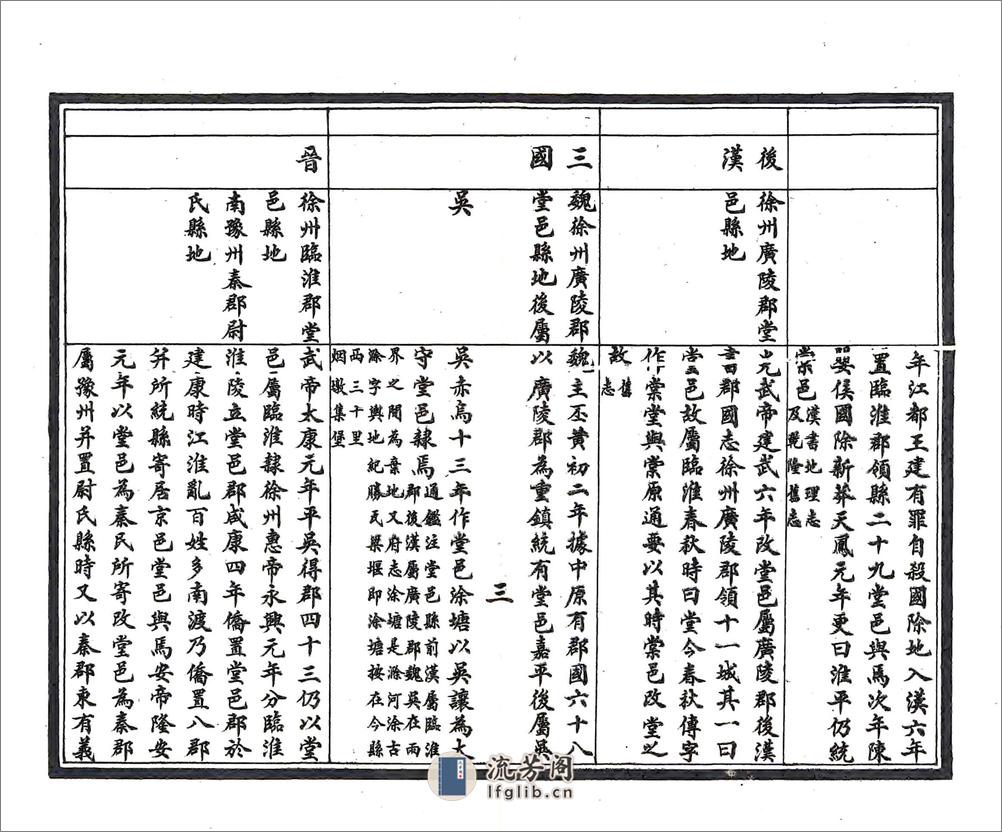 年江都王建有罪自殺國除地入漢六年
置臨淮郡領縣二十九堂邑與焉次年陳
嬰侯國除新莽天鳳元年更曰淮平仍統
棠邑漢書地理志
及乾隆舊志
後
漢
徐州廣陵郡堂
邑縣地
光武帝建武六年改堂邑屬廣陵郡後漢
書郡國志徐州廣陵郡領十一城其一曰
堂邑故屬臨淮春秋時曰堂今春秋傳字
作棠堂與棠原通要以其時棠邑改堂之
故舊志
三
國
魏徐州廣陵郡
堂邑縣地後屬
吳
魏主丕黃初二年據中原有郡國六十八
以廣陵郡為重鎮統有堂邑嘉平後屬吳
三
吳赤烏十三年作堂邑涂塘以吳讓為太
守堂邑隸焉通鑑注堂邑縣前漢屬臨淮
郡後漢屬廣陵郡魏吳在兩
界之間為棄地又府志涂塘是滁河涂古
滁字輿地紀勝瓦梁堰即涂塘按在今縣
西三十里
烟墩集堡
晉
徐州臨淮郡堂
邑縣地
南豫州秦郡尉
氏縣地
武帝太康元年平吳得郡四十三仍以堂
邑屬臨淮隸徐州惠帝永興元年分臨淮
淮陵立堂邑郡咸康四年僑置堂邑郡於
建康時江淮亂百姓多南渡乃僑置八郡
并所統縣寄居京邑堂邑與焉安帝隆安
元年以堂邑為秦民所寄改堂邑為秦郡
屬豫州并置尉氏縣時又以秦郡東有義
流芳阁
lfglib.cn